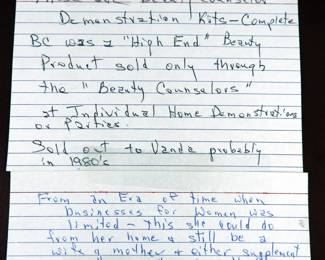 Demonstration Kits-Complete
BC was a "High End" Beauty
Product sold only through
the "Beauty Counselors"
at Individual Home Demonstrations
or Parties.
Sold out to Vanda probably
in 1980's
From an Era of time when
businesses for Women was
limited - this she could do
from her home & still be a
wife & mother & either supplement